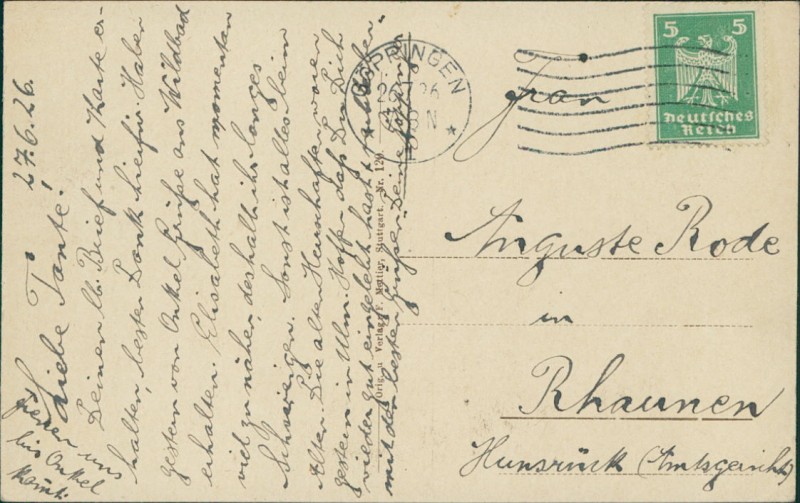 27.6.26.
Liebe Tante!
Deinen lb. Brief und Karte er-
halten, besten Dank hiefür. Haben
gestern von Onkel Grüße aus Wildbad
erhalten. Elisabeth hat momentan
viel zu nähen, deshalb ihr langes
Schweigen. Sonst ist alles beim
Alten. Die alten Herrschaften waren
gestern in Ulm. Hoffe, daß Du Dich
wieder gut eingelebt hast & verbleibe
mit den besten Grüßen Deine
freuen uns
bis Onkel
kommt.
Orig. u. Verlag F. Mettler, Stuttgart. Nr. 120
GÖPPINGEN
26
8 N
5 5
Deutsches
Reich
Frau
Auguste Rode
in
Rhaunen
Hunsrück (Amtsgericht)